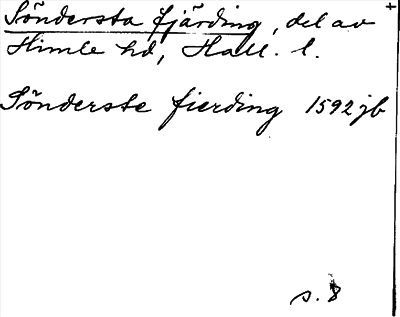 Söndersta fjärding, del av
Himle hd, Hall. l.
Sönderste fierding 1592 jb
s. 8